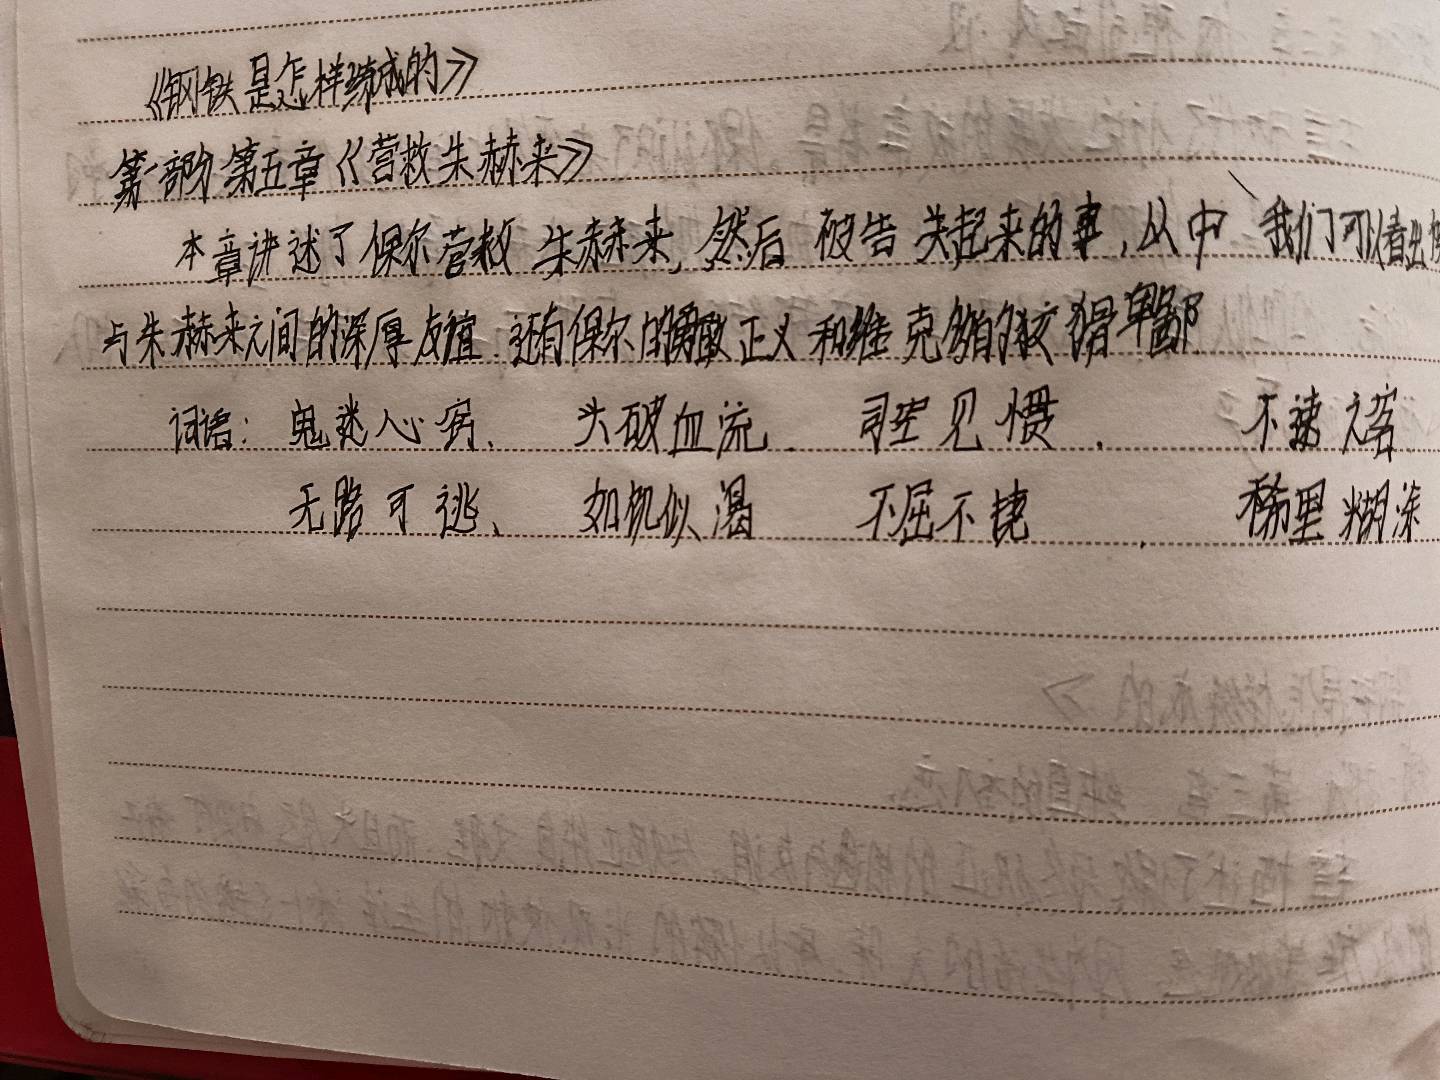 《钢铁是怎样练成的》
第一部分第五章《营救朱赫来》
本章讲述了保尔营救朱赫来,然后被告关起来的事,从中、我们可以看出
与朱赫来之间的深厚友谊.还有保尔的勇敢正义和维克多的狡猾卑鄙
词语:鬼迷心窍、头破血流.司空见惯.不速之客
无路可逃、如饥似渴 不屈不挠.稀里糊涂